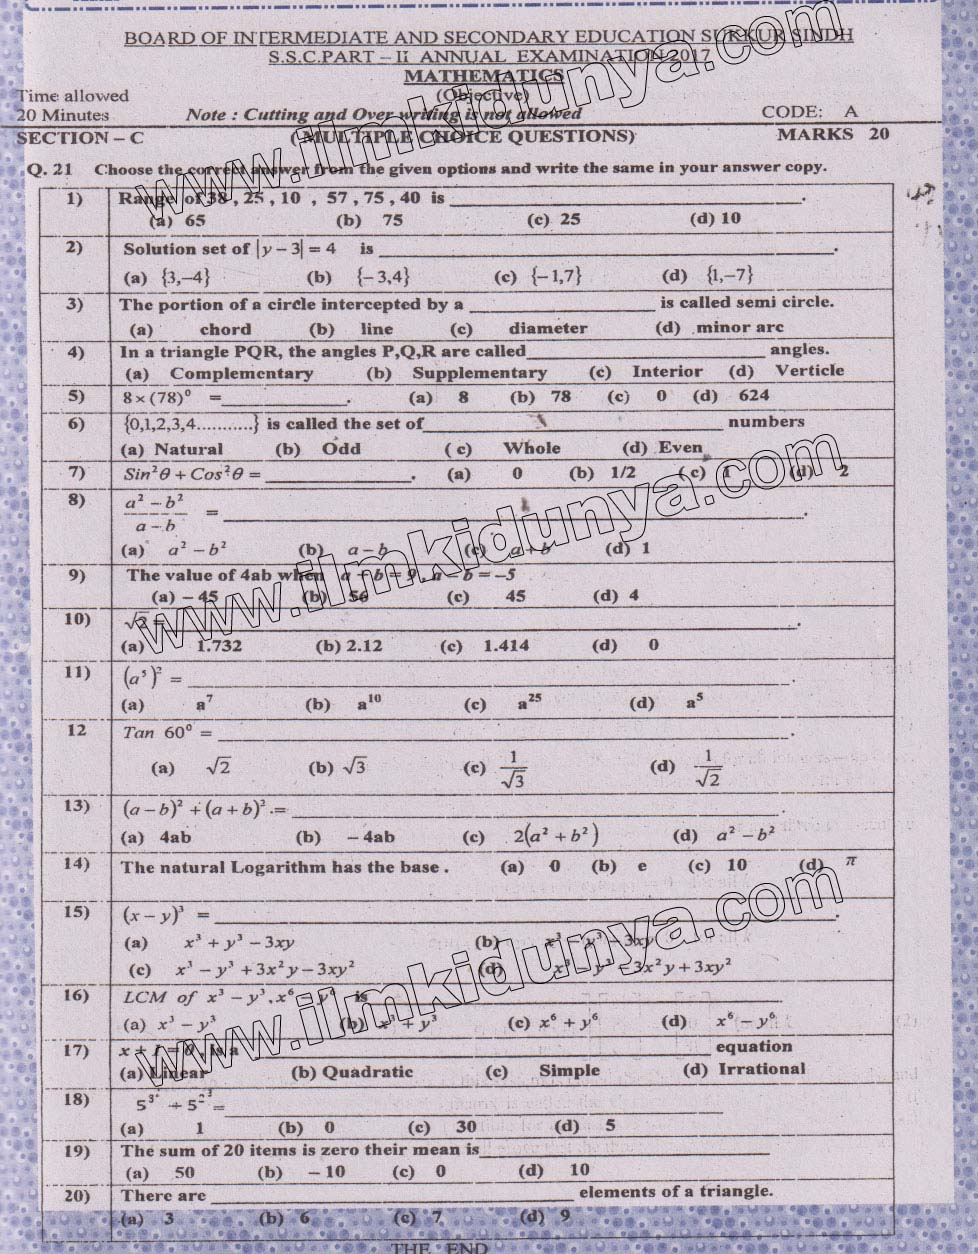 BOARD OF INTERMEDIATE AND SECONDARY EDUCATION SUKKUR SINDH
S.S.C.PART – Ii ANNUAL EXAMINATION 2017
MATHEMATICS
Time allowed (Objective)
20 Minutes Note : Cutting and Over writing is not allowed CODE: A
SECTION – C (MULTIPLE CHOICE QUESTIONS) MARKS 20
Q. 21 Choose the correct answer from the given options and write the same in your answer copy.
1) Range of 38 , 25 , 10 , 57 , 75 , 40 is ________.
(a) 65 (b) 75 (c) 25 (d) 10
2) Solution set of |y – 3| = 4 is ________.
(a) {3,–4} (b) {–3,4} (c) {–1,7} (d) {1,–7}
3) The portion of a circle intercepted by a ________ is called semi circle.
(a) chord (b) line (c) diameter (d) minor arc
4) In a triangle PQR, the angles P,Q,R are called ________ angles.
(a) Complementary (b) Supplementary (c) Interior (d) Verticle
5) 8 × (78)⁰ = ________. (a) 8 (b) 78 (c) 0 (d) 624
6) {0,1,2,3,4...........} is called the set of ________ numbers
(a) Natural (b) Odd ( c) Whole (d) Even
7) Sin²θ + Cos²θ = ________. (a) 0 (b) 1/2 ( c) 1 (d) 2
8) a² – b² / a – b = ________.
(a) a² – b² (b) a – b (c) a + b (d) 1
9) The value of 4ab when a + b = 9 , a – b = –5
(a) – 45 (b) 56 (c) 45 (d) 4
10) √2 = ________.
(a) 1.732 (b) 2.12 (c) 1.414 (d) 0
11) (a⁵)² = ________.
(a) a⁷ (b) a¹⁰ (c) a²⁵ (d) a⁵
12 Tan 60⁰ = ________.
(a) √2 (b) √3 (c) 1/√3 (d) 1/√2
13) (a – b)² + (a + b)² .= ________.
(a) 4ab (b) – 4ab (c) 2(a² + b²) (d) a² – b²
14) The natural Logarithm has the base . (a) 0 (b) e (c) 10 (d) π
15) (x – y)³ = ________.
(a) x³ + y³ – 3xy (b) x³ – y³ – 3xy
(c) x³ – y³ + 3x²y – 3xy² (d) x³ – y³ – 3x²y + 3xy²
16) LCM of x³ – y³, x⁶ – y⁶ is ________
(a) x³ – y³ (b) x³ + y³ (c) x⁶ + y⁶ (d) x⁶ – y⁶
17) x + 1 = 0 , is a ________ equation
(a) Linear (b) Quadratic (c) Simple (d) Irrational
18) ________
(a) 1 (b) 0 (c) 30 (d) 5
19) The sum of 20 items is zero their mean is ________
(a) 50 (b) – 10 (c) 0 (d) 10
20) There are ________ elements of a triangle.
(a) 3 (b) 6 (c) 7 (d) 9
THE END
www.ilmkidunya.com
www.ilmkidunya.com
www.ilmkidunya.com